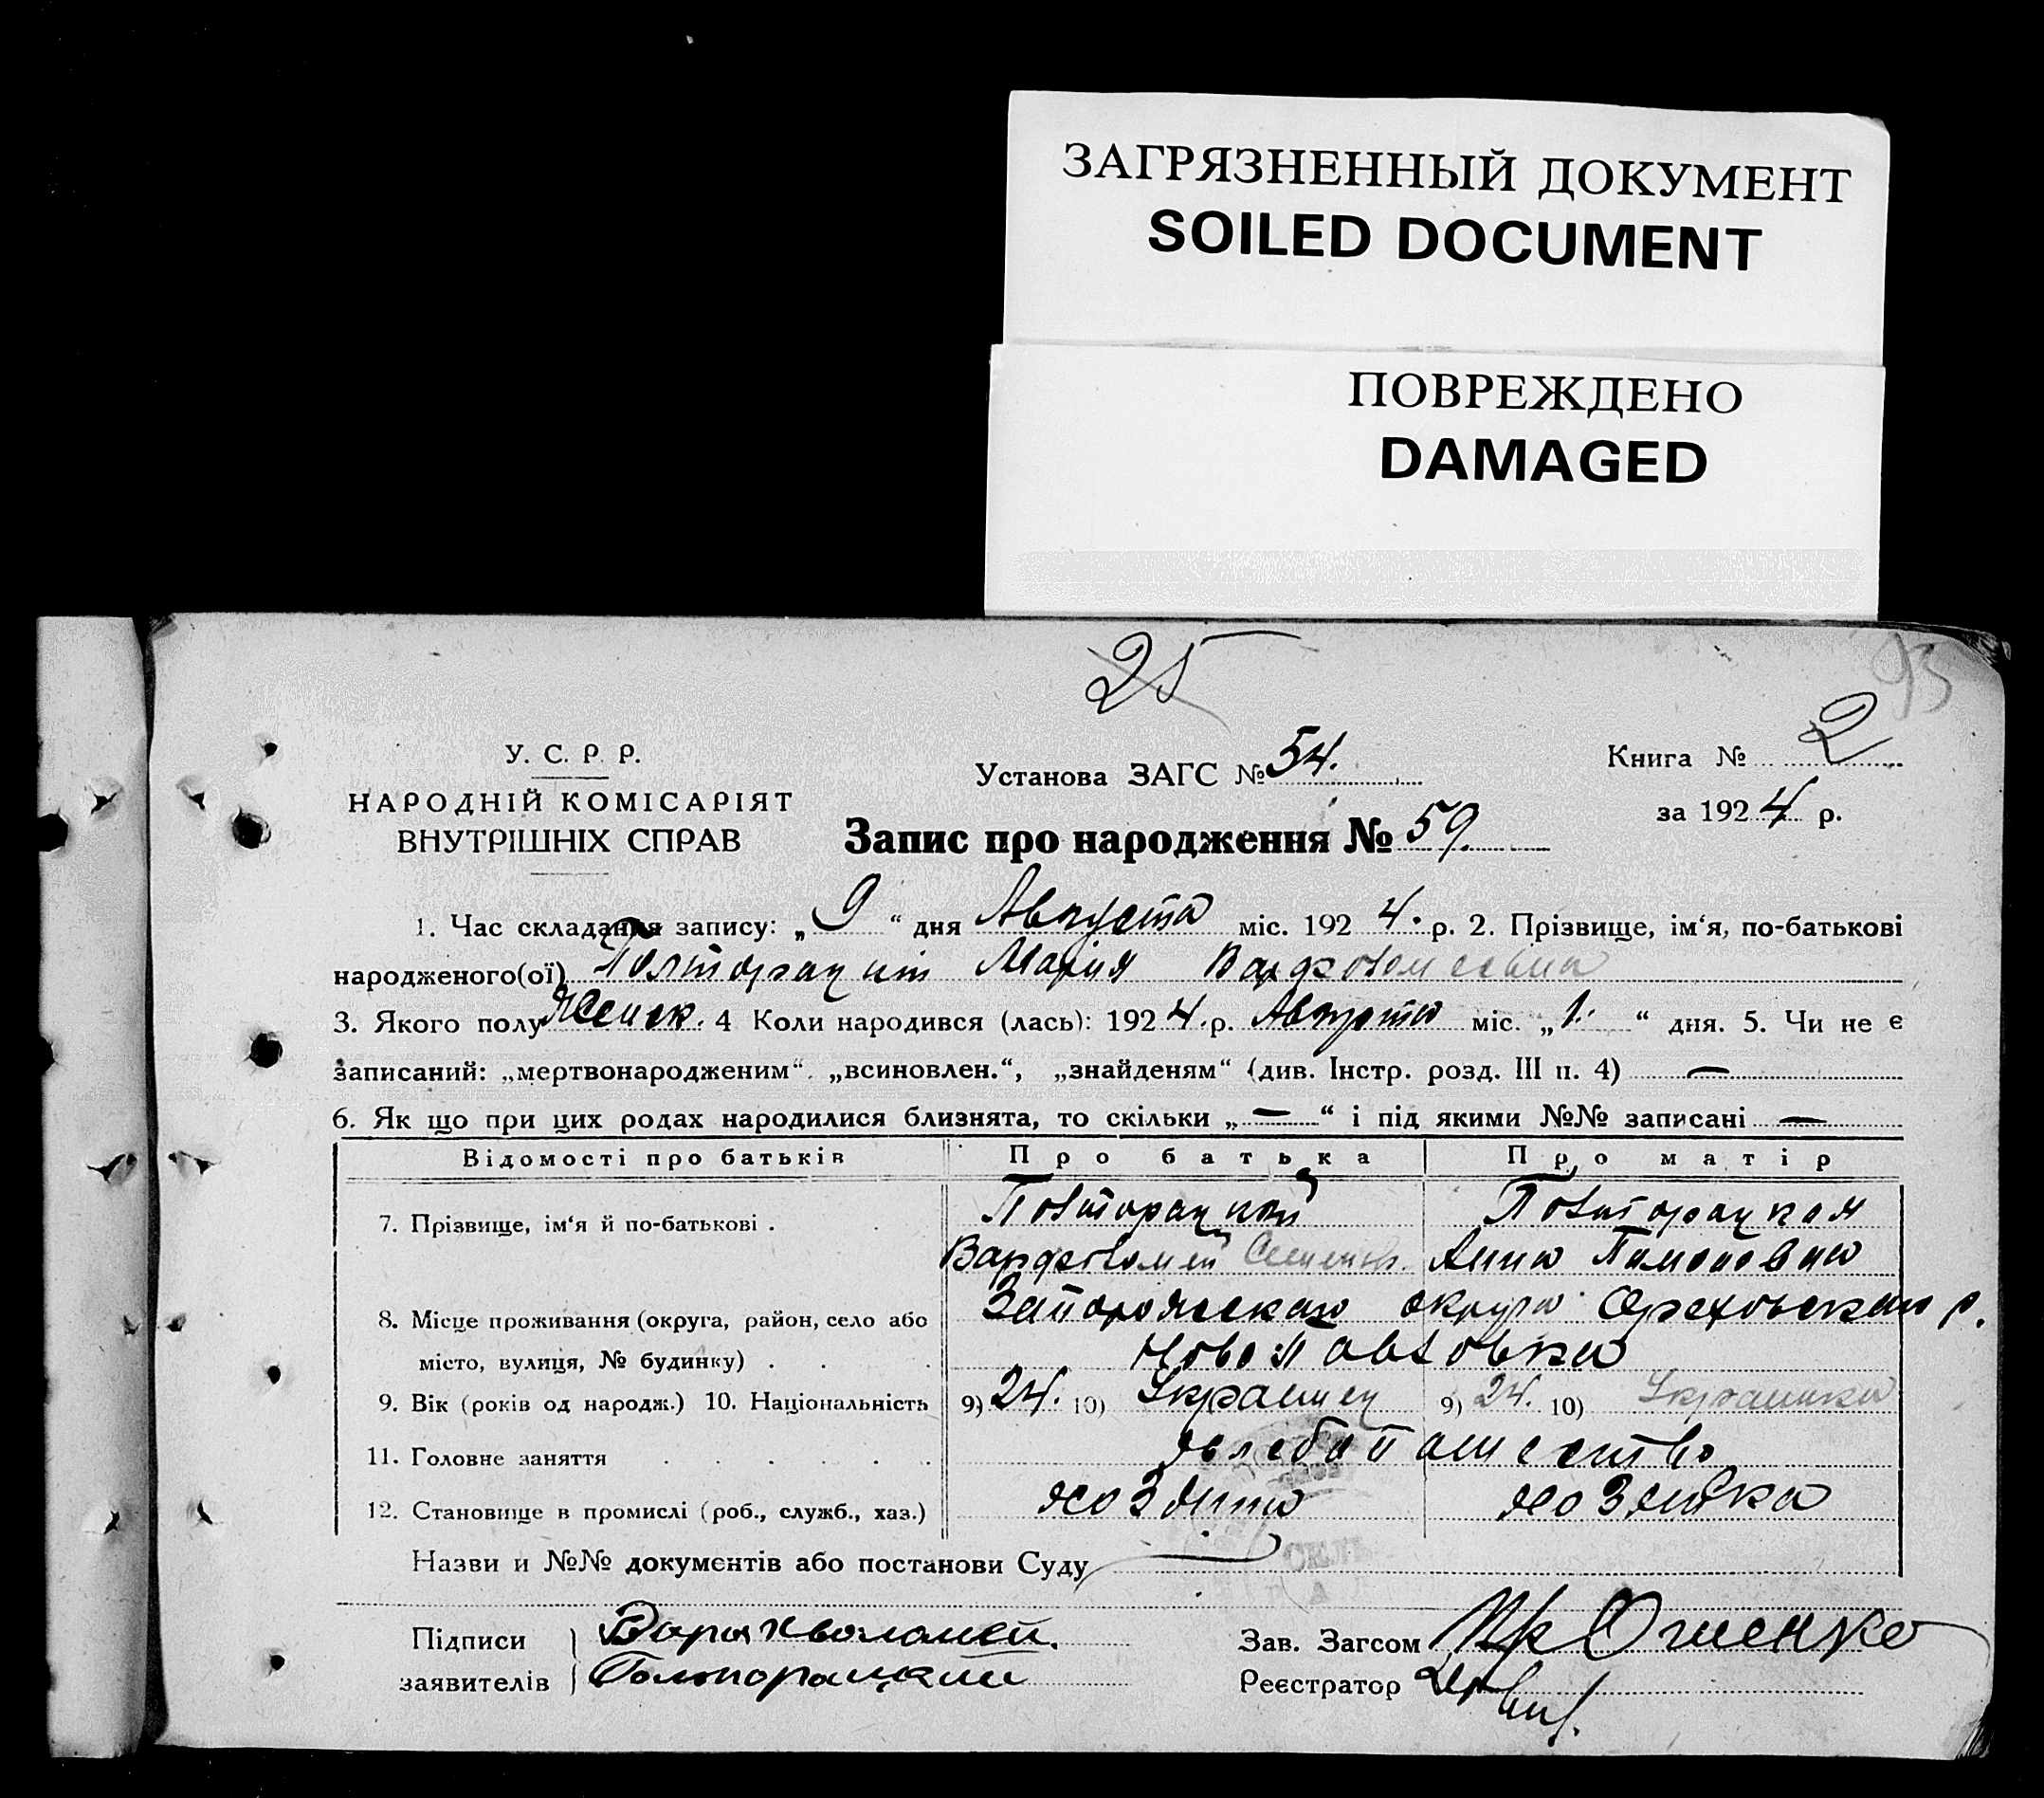 ЗАГРЯЗНЕННЫЙ ДОКУМЕНТ
SOILED DOCUMENT
ПОВРЕЖДЕНО
DAMAGED
25
93
У. С. Р. Р.
НАРОДНІЙ КОМІСАРІЯТ
ВНУТРІШНІХ СПРАВ
Установа ЗАГС № 54.
Книга № 2
за 1924 р.
Запис про народження № 59.
1. Час складання запису: „ 9 “ дня Августа міс. 1924. р. 2. Прізвище, ім‘я, по-батькові
народженого(ої) Мария Варфоломеевна
3. Якого полу Женск. 4 Коли народився (лась): 1924. р. Августа міс. „ 1. “ дня. 5. Чи не є
записаний: „мертвонародженим“. „всиновлен.“, „знайденям“ (див. Інстр. розд. III п. 4) —
6. Як що при цих родах народилися близнята, то скільки „ — “ і під якими №№ записані —
Відомості про батьків Про батька Про матір
7. Прізвище, ім‘я й по-батькові . Полторацкий Полторацкая
Варфоломей Семенов. Анна
8. Місце проживання (округа, район, село або Запорожская округа Ореховского р.
місто, вулиця, № будинку) . . . Новопавловка
9. Вік (років од народж.) 10. Національність 9) 24. 10) Украинец 9) 24. 10) Украинка
11. Головне заняття . . . . . . хлебопашество
12. Становище в промислі (роб., служб., хаз.) хозяин хозяйка
Назви и №№ документів або постанови Суду
Підписи
заявителів
Полторацкий
Зав. Загсом
Реєстратор